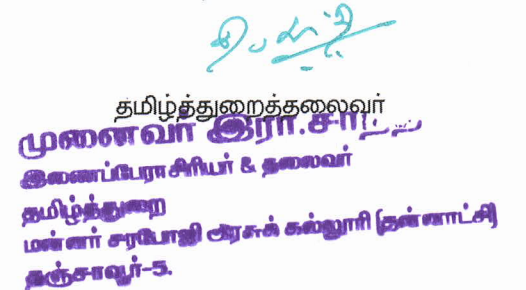 தமிழ்த்துறைத்தலைவர்
முனைவர் இரா.
இணைப்பேராசிரியர் & தலைவர்
தமிழ்த்துறை
மன்னர் சரபோஜி அரசுக் கல்லூரி (தன்னாட்சி)
தஞ்சாவூர்-5.